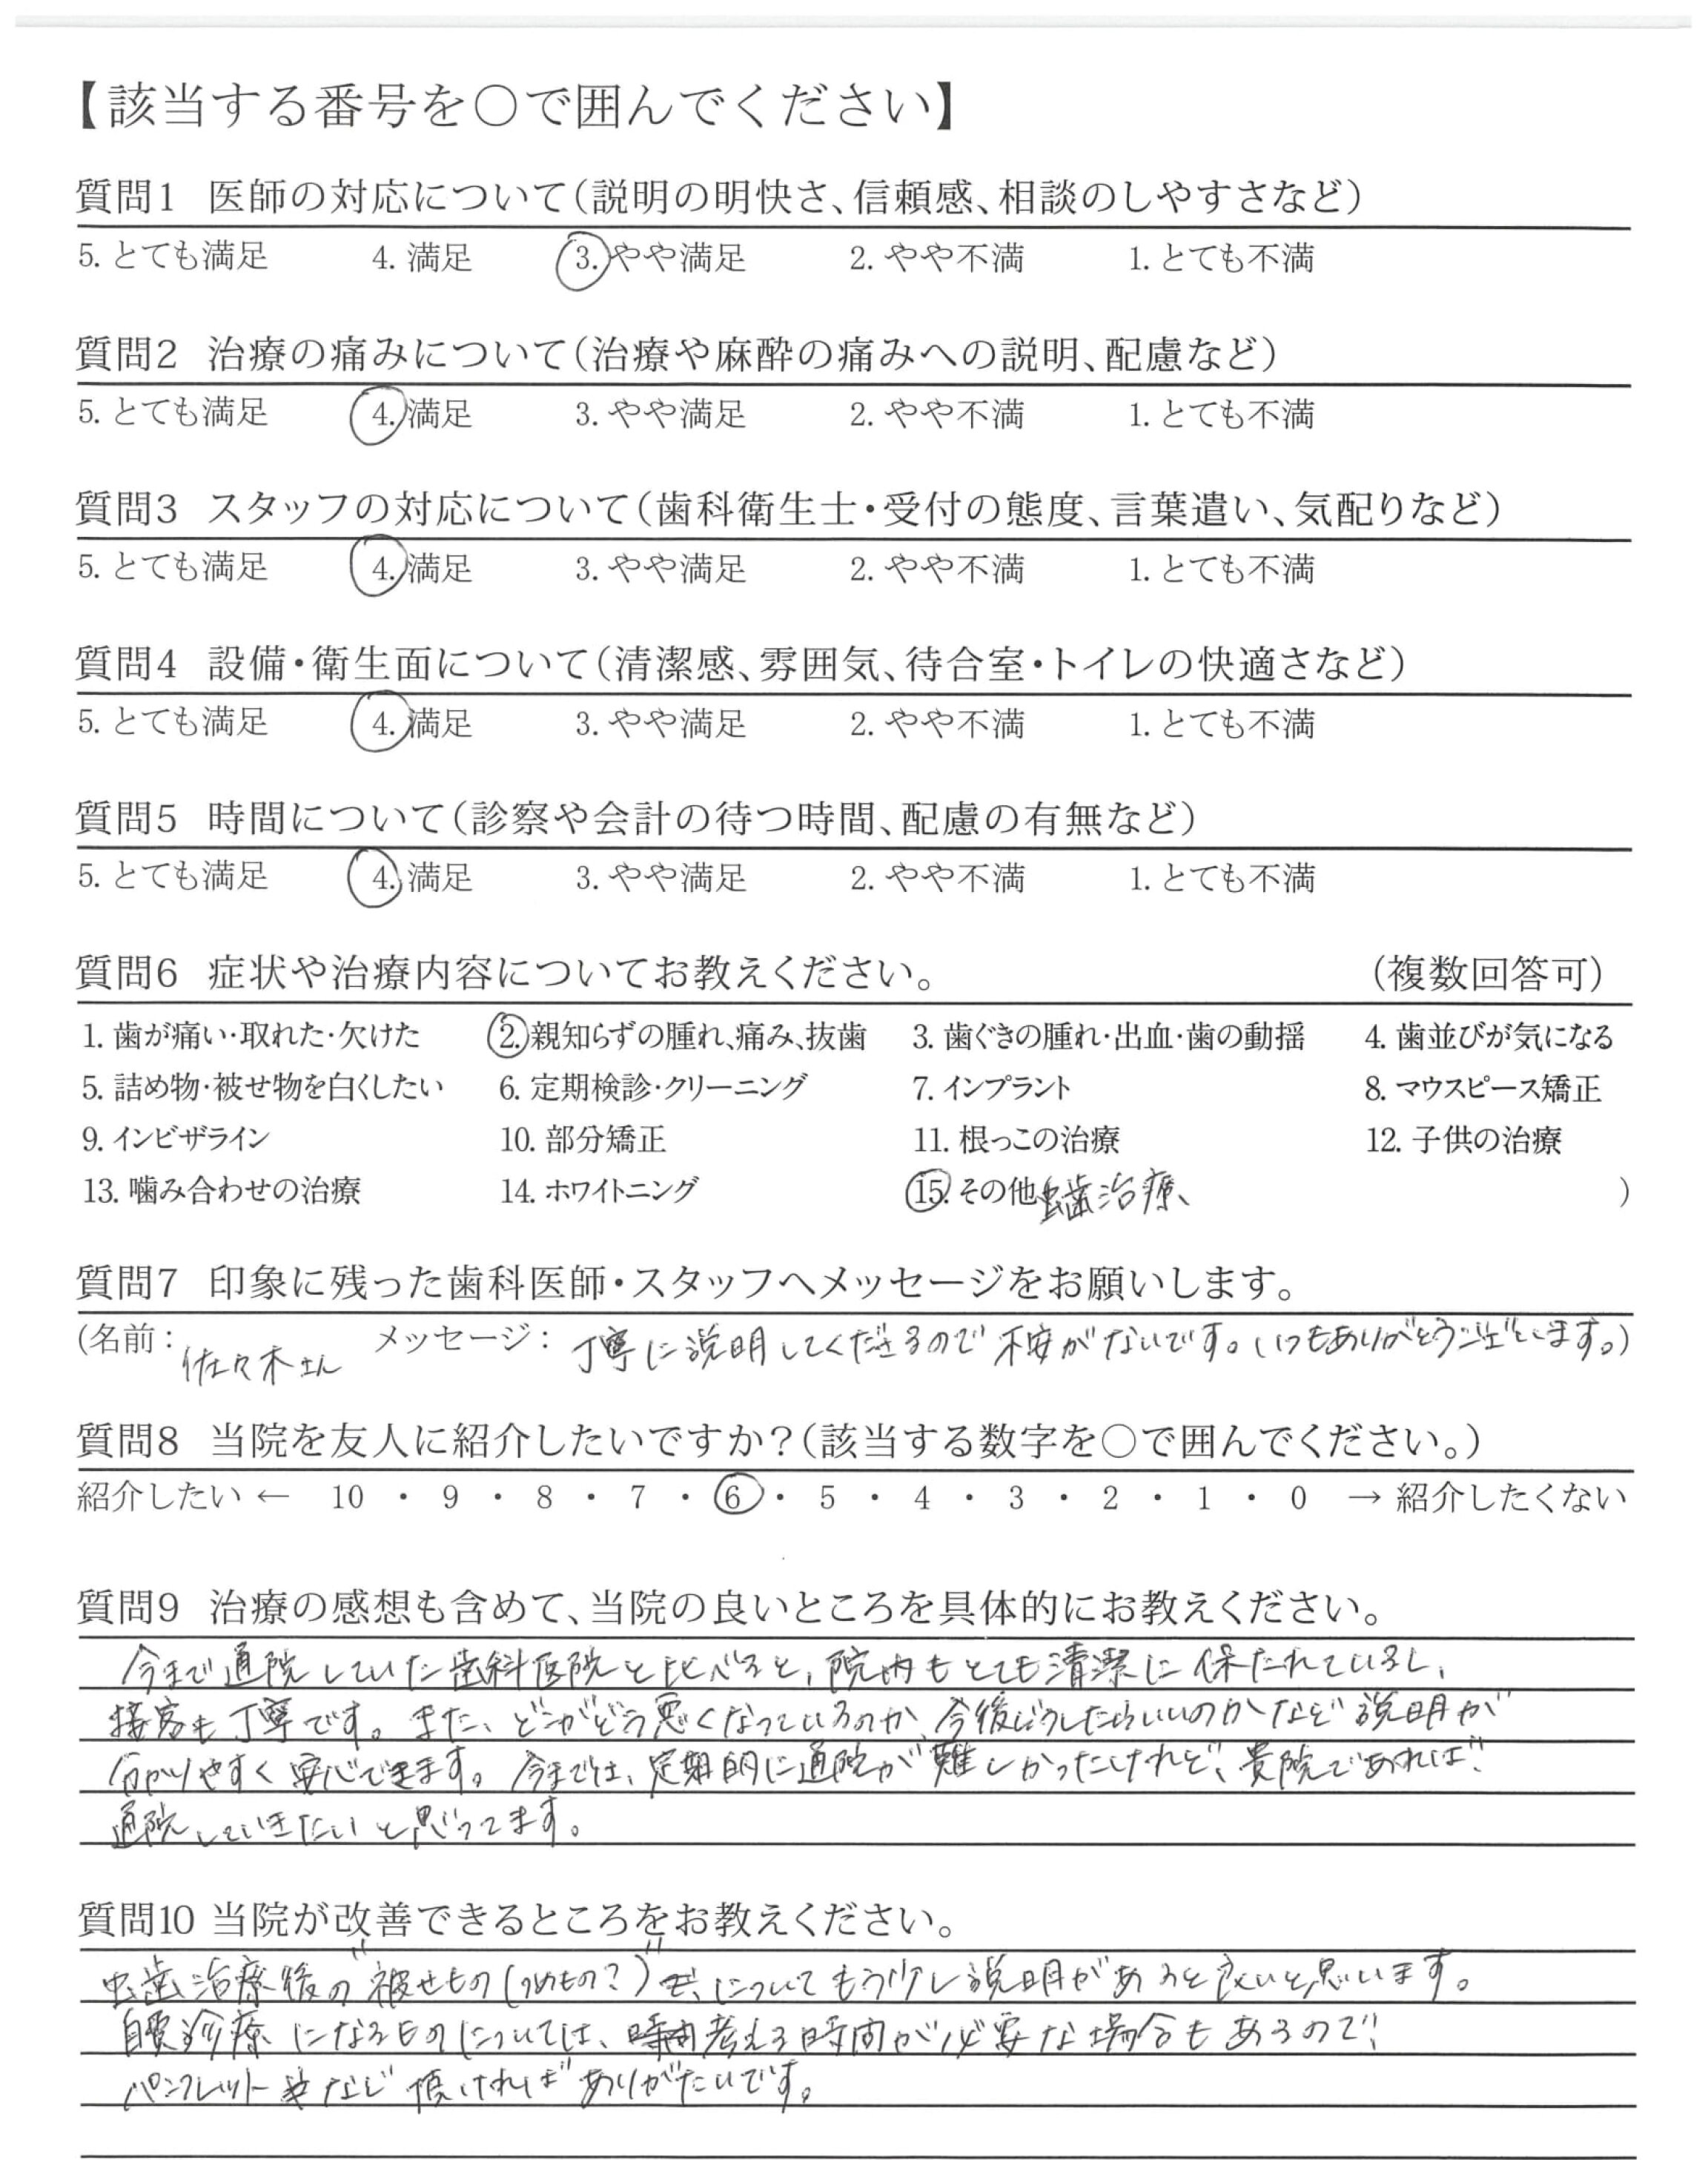 【該当する番号を○で囲んでください】
質問1 医師の対応について（説明の明快さ、信頼感、相談のしやすさなど）
5. とても満足 4. 満足 3. やや満足 2. やや不満 1. とても不満
質問2 治療の痛みについて（治療や麻酔の痛みへの説明、配慮など）
5. とても満足 4. 満足 3. やや満足 2. やや不満 1. とても不満
質問3 スタッフの対応について（歯科衛生士・受付の態度、言葉遣い、気配りなど）
5. とても満足 4. 満足 3. やや満足 2. やや不満 1. とても不満
質問4 設備・衛生面について（清潔感、雰囲気、待合室・トイレの快適さなど）
5. とても満足 4. 満足 3. やや満足 2. やや不満 1. とても不満
質問5 時間について（診察や会計の待つ時間、配慮の有無など）
5. とても満足 4. 満足 3. やや満足 2. やや不満 1. とても不満
質問6 症状や治療内容についてお教えください。 （複数回答可）
1. 歯が痛い・取れた・欠けた 2. 親知らずの腫れ、痛み、抜歯 3. 歯ぐきの腫れ・出血・歯の動揺 4. 歯並びが気になる
5. 詰め物・被せ物を白くしたい 6. 定期検診・クリーニング 7. インプラント 8. マウスピース矯正
9. インビザライン 10. 部分矯正 11. 根っこの治療 12. 子供の治療
13. 噛み合わせの治療 14. ホワイトニング 15. その他 虫歯治療、 ）
質問7 印象に残った歯科医師・スタッフへメッセージをお願いします。
（名前： 佐々木さん メッセージ： 丁寧に説明してくださるので不安がないです。いつもありがとうございます。）
質問8 当院を友人に紹介したいですか？（該当する数字を○で囲んでください。）
紹介したい ← 10 ・ 9 ・ 8 ・ 7 ・ 6 ・ 5 ・ 4 ・ 3 ・ 2 ・ 1 ・ 0 → 紹介したくない
質問9 治療の感想も含めて、当院の良いところを具体的にお教えください。
今まで通院していた歯科医院と比べると、院内もとても清潔に保たれているし、
接客も丁寧です。また、どこがどう悪くなっているのか、今後どうしたらいいのかなど説明が
分かりやすく安心できます。今までは、定期的に通院が難しかったけれど、貴院であれば
通院していきたいと思ってます。
質問10 当院が改善できるところをお教えください。
虫歯治療後の"被せもの（つめもの？）"についてもう少し説明があると良いと思います。
自費診療になるものについては、考える時間が必要な場合もあるので、
パンフレットなど頂ければありがたいです。